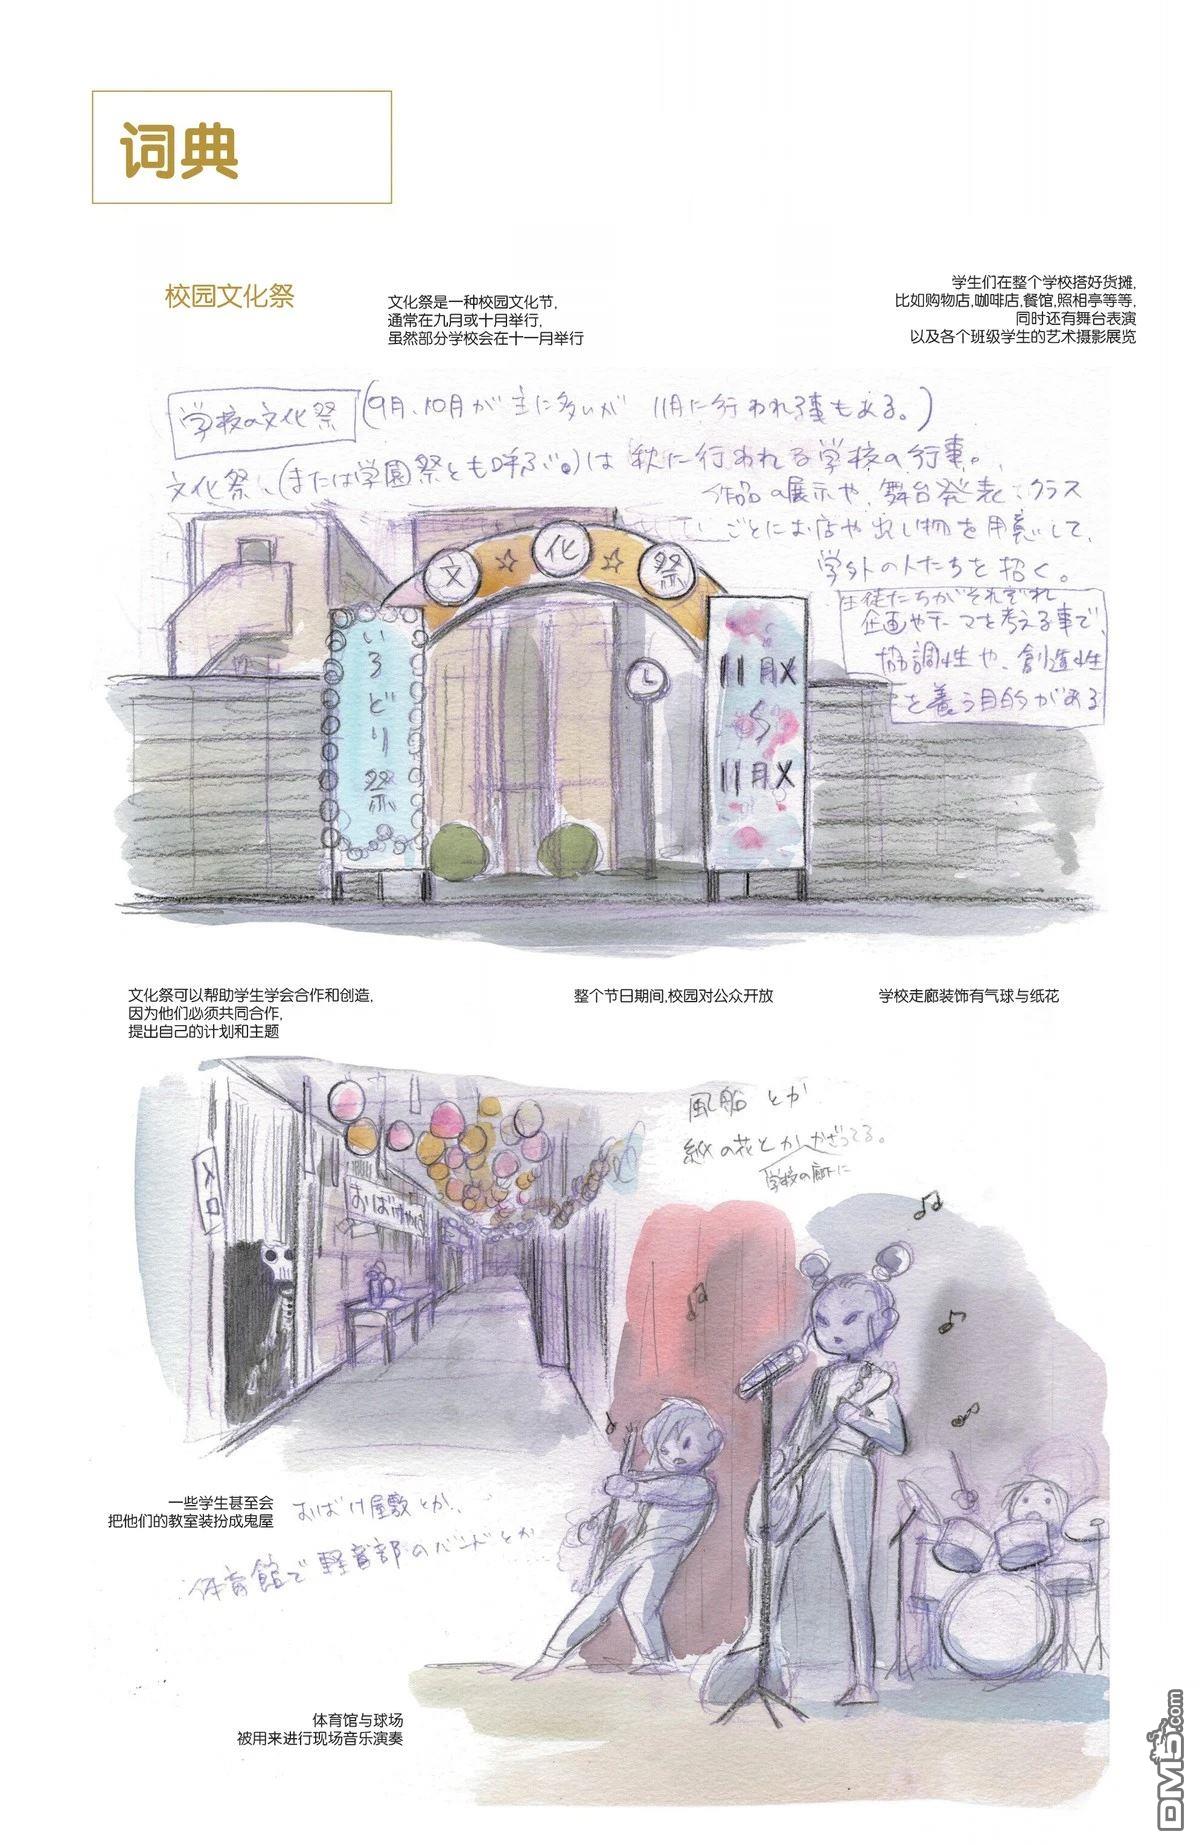 词典
校园文化祭
文化祭是一种校园文化节,
通常在九月或十月举行,
虽然部分学校会在十一月举行
学生们在整个学校搭好货摊,
比如购物店,咖啡店,餐馆,照相亭等等,
同时还有舞台表演
以及各个班级学生的艺术摄影展览
学校の文化祭 (9月、10月が主に多いが 11月に行われる事もある。)
文化祭、(または学園祭とも呼ぶ。)は 秋に行われる学校の行事。
作品の展示や、舞台発表、クラス
ごとにお店や出し物を用意して、
学外の人たちを招く。
生徒たちがそれぞれ
企画やテーマを考える事で、
協調性や、創造性
を養う目的がある
文☆化☆祭
いろどり祭
11月
11月
文化祭可以帮助学生学会合作和创造,
因为他们必须共同合作,
提出自己的计划和主题
整个节日期间,校园对公众开放
学校走廊装饰有气球与纸花
風船とか
紙の花とかかざってる。
学校の廊下に
入口
おばけやしき
一些学生甚至会
把他们的教室装扮成鬼屋
おばけ屋敷とか、
体育館で軽音部のバンドとか
体育馆与球场
被用来进行现场音乐演奏
DM5.com